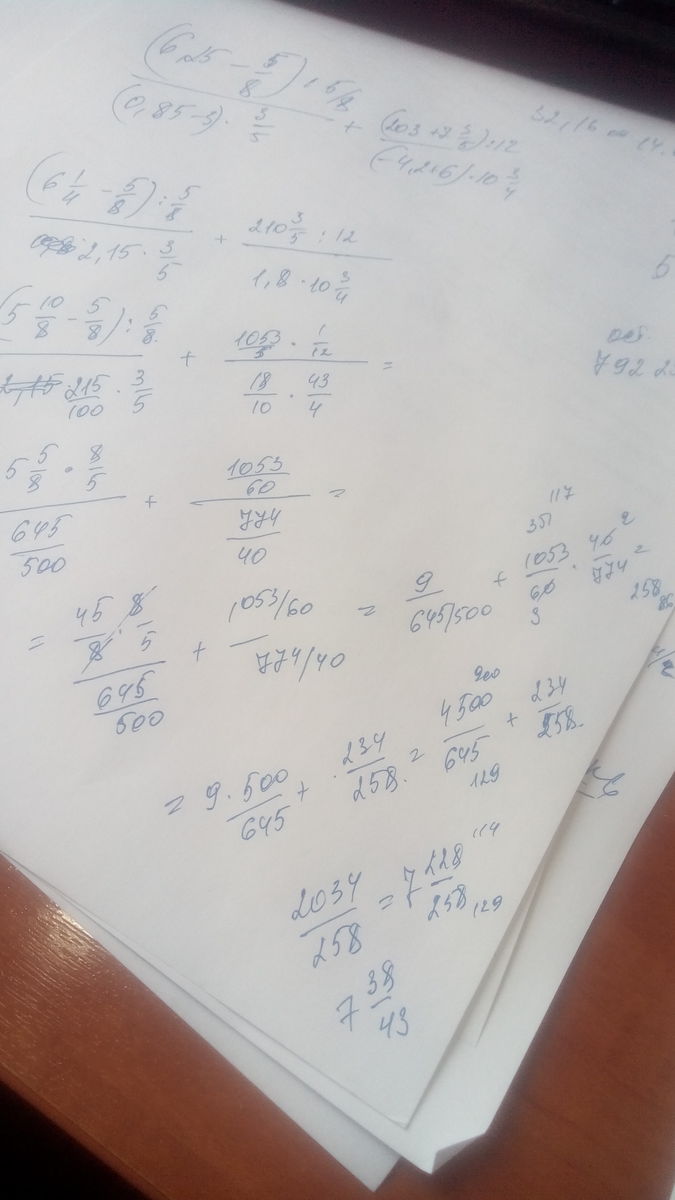 (6,25 - 5/8) : 5/8
(0,85-3) · 3/5 + (203 + 7 3/5) : 12
(-4,2+6) · 10 3/4
32,16
(6 1/4 - 5/8) : 5/8
2,15 · 3/5 + 210 3/5 : 12
1,8 · 10 3/4
5
(5 10/8 - 5/8) : 5/8
215/100 · 3/5 + 1053/5 · 1/12 =
18/10 · 43/4
ост.
792
5 5/8 · 8/5
645/500 + 1053/60 =
774/40
117
351 2
= 45/8 · 8/5 + 1053/60 = 9 + 1053/60 · 40/774 =
645/500 774/40 645/500
3 258 86
900
= 9 · 500/645 + 234/258 = 4500/645 + 234/258
129
2034/258 = 7 228/258 114 129
7 38/43